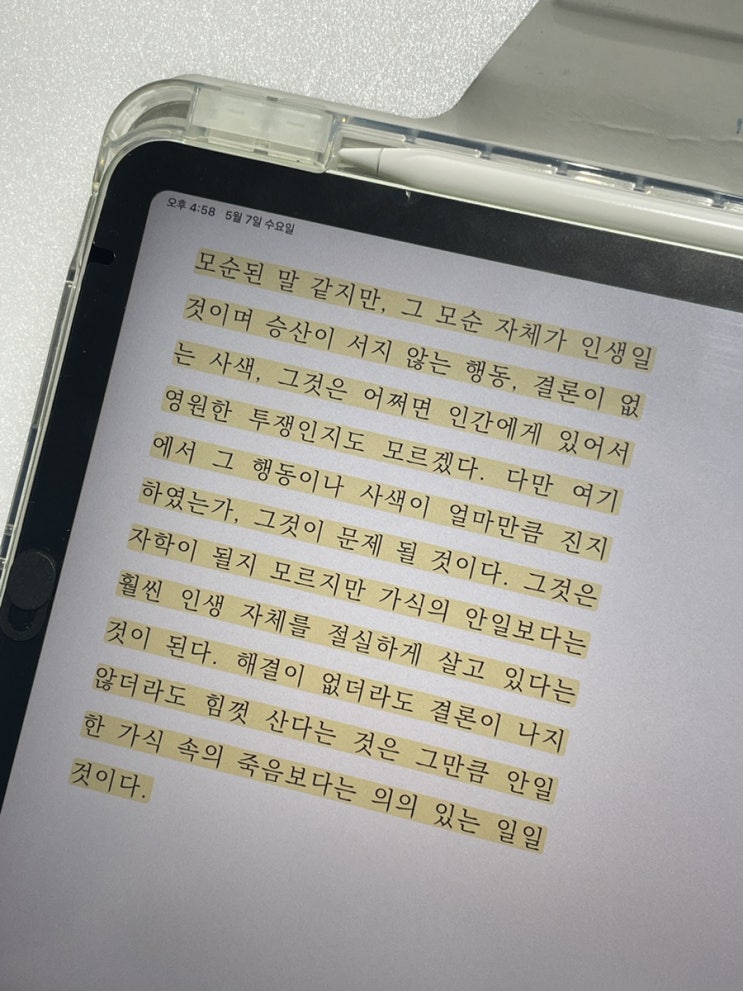 오후 4:58 5월 7일 수요일
모순된 말 같지만, 그 모순 자체가 인생일
것이며 승산이 서지 않는 행동, 결론이 없
는 사색, 그것은 어쩌면 인간에게 있어서
영원한 투쟁인지도 모르겠다. 다만 여기
에서 그 행동이나 사색이 얼마만큼 진지
하였는가, 그것이 문제 될 것이다. 그것은
자학이 될지 모르지만 가식의 안일보다는
훨씬 인생 자체를 절실하게 살고 있다는
것이 된다. 해결이 없더라도 결론이 나지
않더라도 힘껏 산다는 것은 그만큼 안일
한 가식 속의 죽음보다는 의의 있는 일일
것이다.